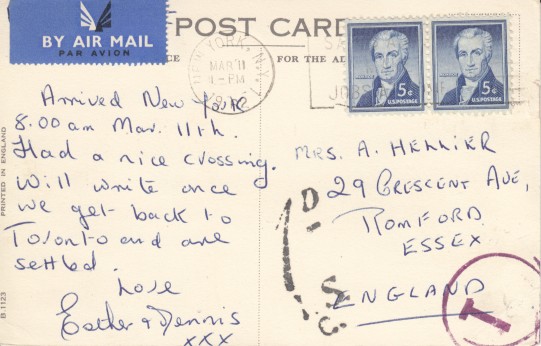 POST CARD
BY AIR MAIL
PAR AVION
FOR THE
NEW YORK, N.Y.
MAR 11
1-PM
5¢
U.S. POSTAGE
5¢
U.S. POSTAGE
Arrived New York
8.00 am Mar. 11th.
Had a nice crossing.
Will write once
we get back to
Toronto and are
settled.
Love
Esther & Dennis
xxx
MRS. A. HELLIER
29 CRESCENT AVE,
ROMFORD
ESSEX
ENGLAND
T
PRINTED IN ENGLAND
B.1123